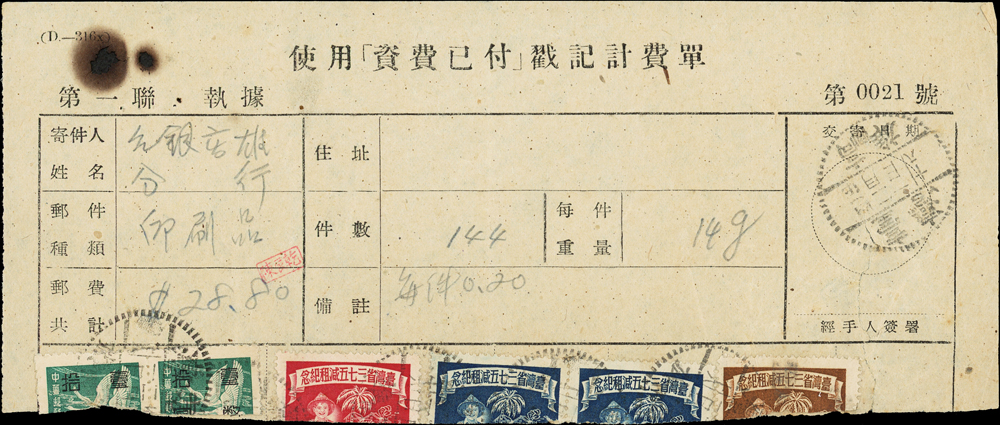 (D.—316x)
使用「資費已付」戳記計費單
第一聯．執據
第 0021 號
寄件人姓名
台銀高雄分行
住址
交寄日期
郵件種類
印刷品
件數
144
每件重量
14g
郵費共計
$28.80
備註
每件0.20
經手人簽署
臺灣省三七五減租紀念
臺灣省三七五減租紀念
臺灣省三七五減租紀念
臺灣省三七五減租紀念